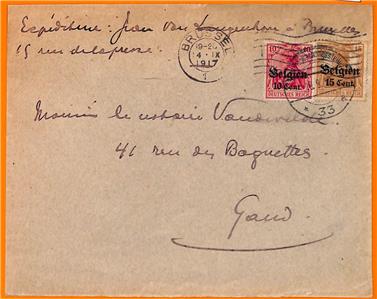 Expéditeur : Jean Van Langenhove Bruxelles
15 rue de la presse
BRUSSEL
19-20
4-IX
1917
1
10
Belgien
10 Cent.
DEUTSCHES REICH
15
Belgien
15 Cent.
33
Monsieur le notaire Vandervelde
41 rue des Baguettes
Gand